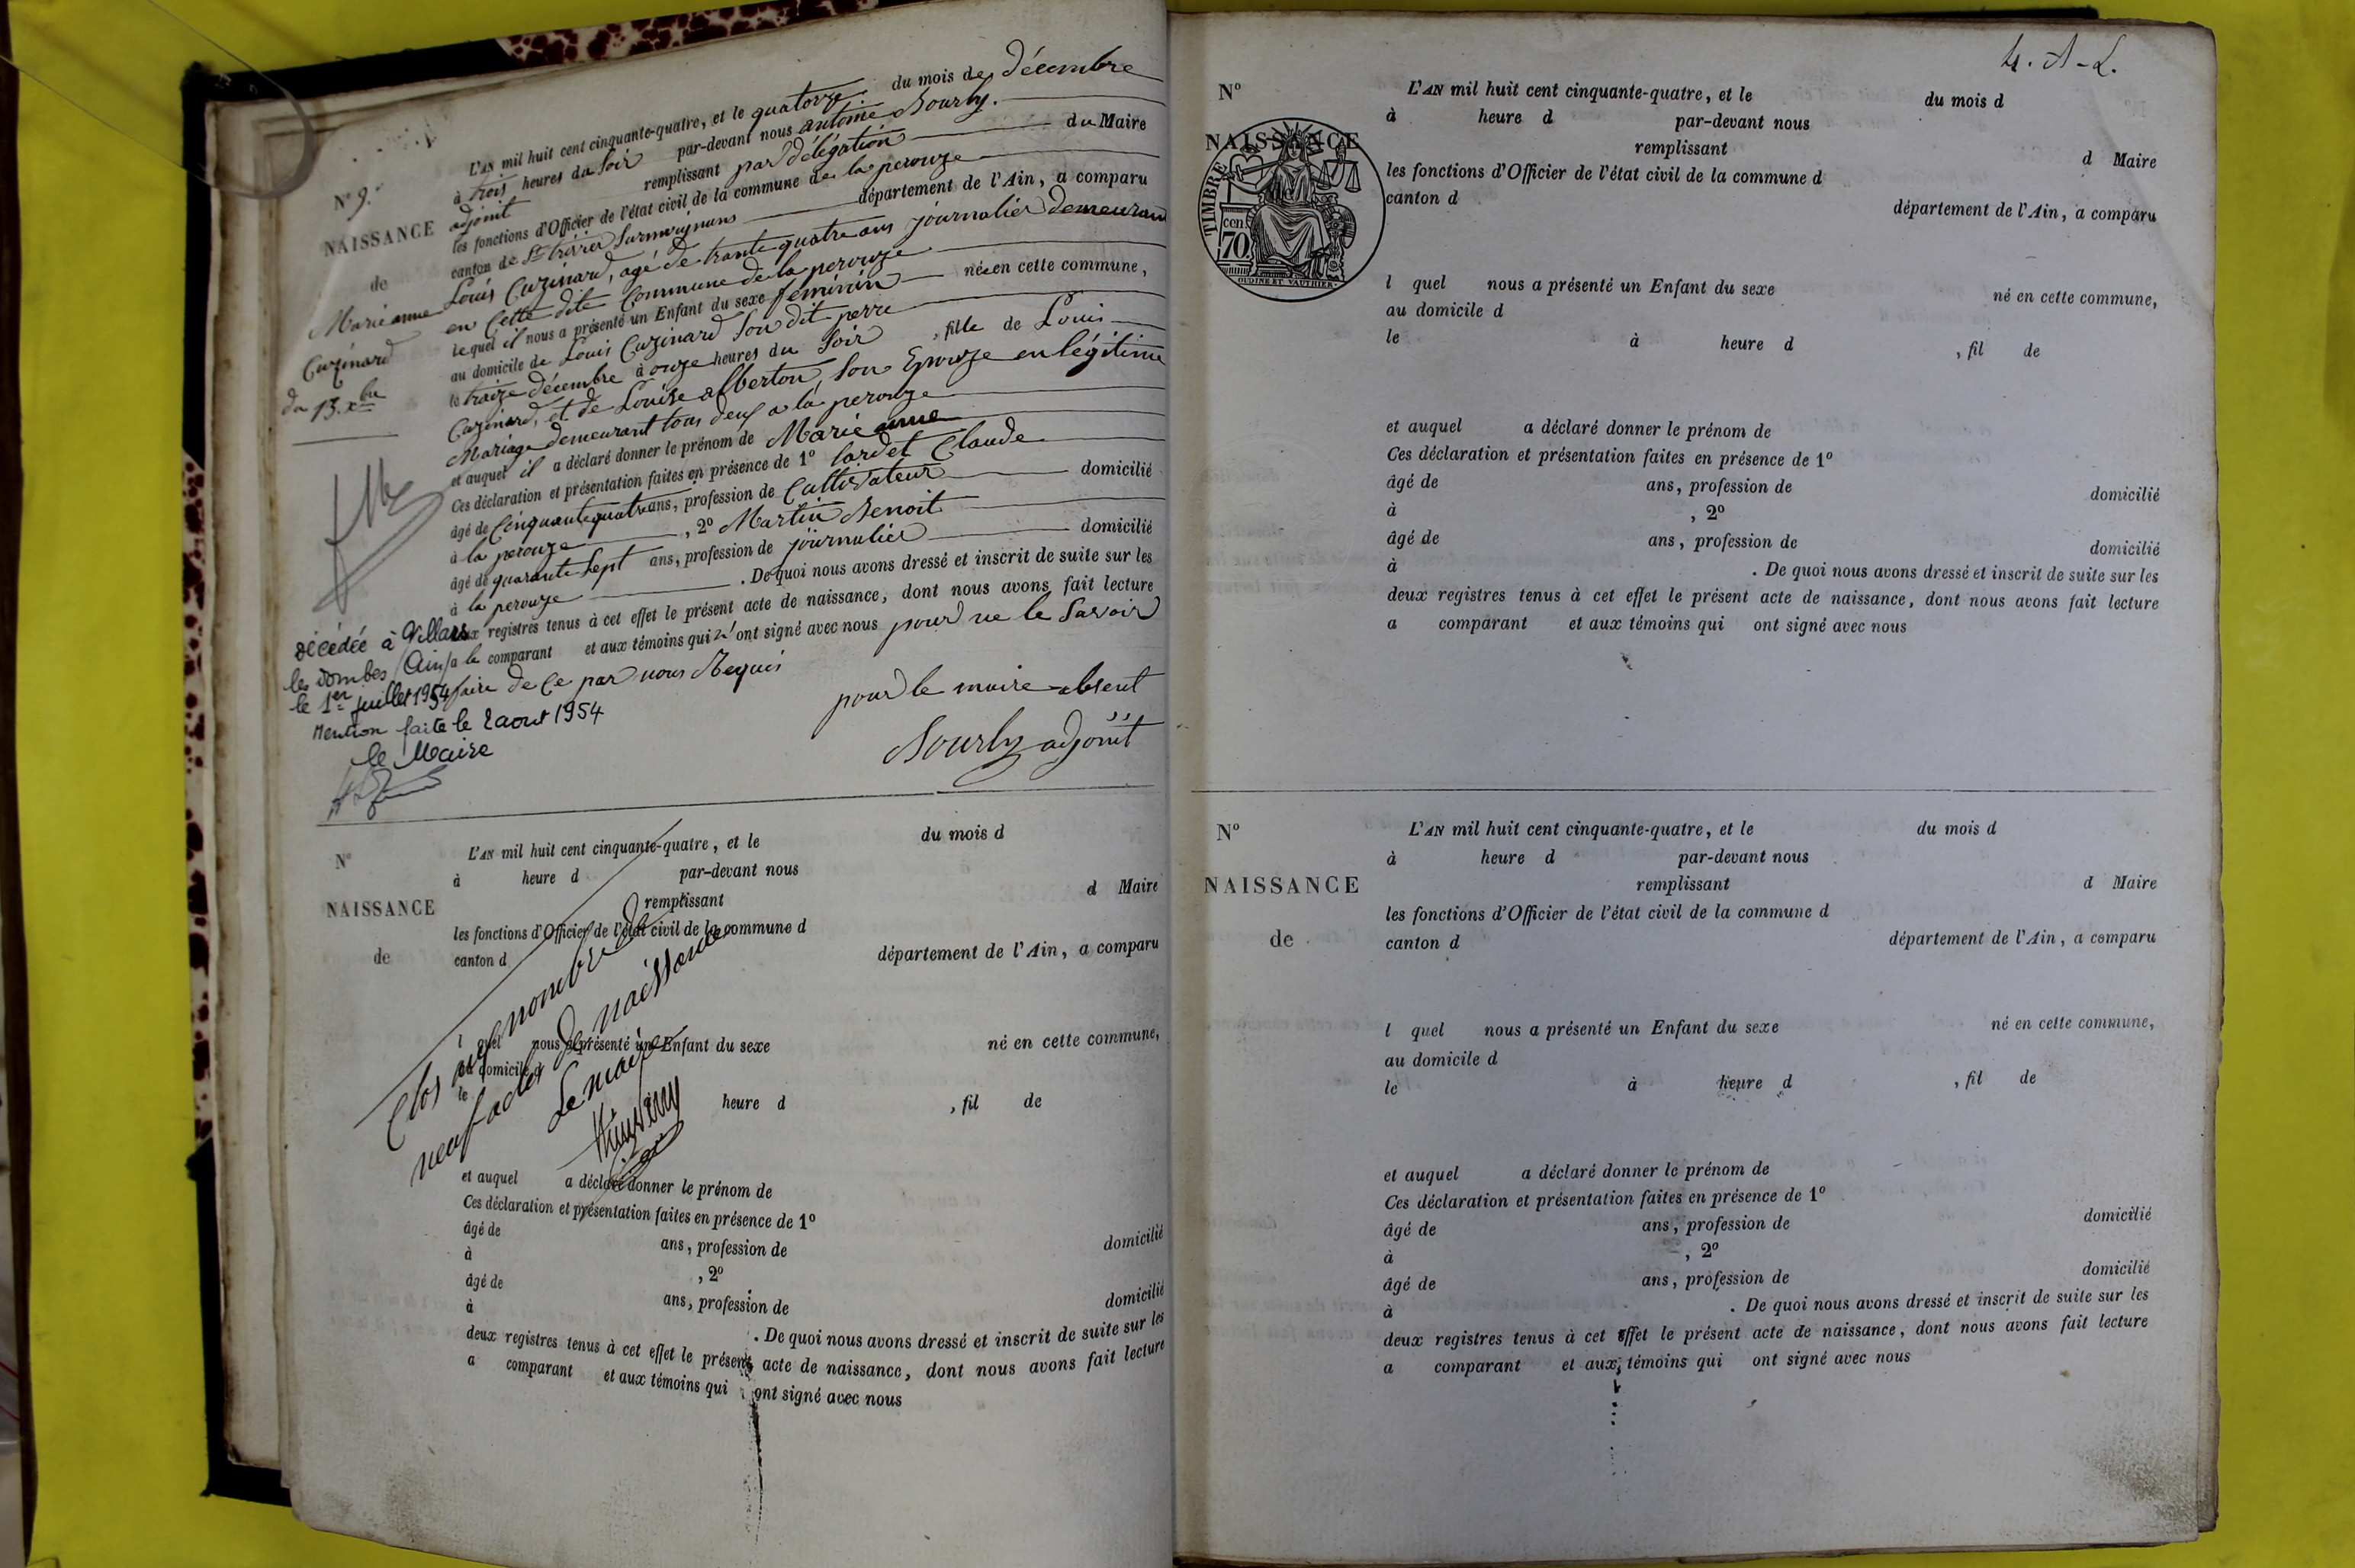 N° 9.
NAISSANCE
de
Marie anne
Cuzinard
du 13. xbre
L'AN mil huit cent cinquante-quatre, et le quatorze du mois de décembre
à trois heures du soir par-devant nous antoine Bourby.
adjoint remplissant par délégation du Maire
les fonctions d'Officier de l'état civil de la commune de la perouze
canton de St trivier Surmoignans département de l'Ain, a comparu
Louis Cuzinard, agé de trante quatre ans journalier demeurant
en Cette dite Commune de la perouze
lequel il nous a présenté un Enfant du sexe féminin née en cette commune,
au domicile de Louis Cuzinard Son dit perre
le traize décembre à onze heures du Soir, fille de Louis
Cuzinard, et de Louise alberton, Son Epouze en légitime
Mariage demeurant tous deux a la perouze
et auquel il a déclaré donner le prénom de Marie anne
Ces déclaration et présentation faites en présence de 1° lardet Claude
âgé de Cinquante quatre ans, profession de Cultivateur domicilié
à la perouze, 2° Martin Benoit
âgé de quarante Sept ans, profession de journalier domicilié
à la perouze. De quoi nous avons dressé et inscrit de suite sur les
deux registres tenus à cet effet le présent acte de naissance, dont nous avons fait lecture
a le comparant et aux témoins qui n'ont signé avec nous pour ne le Savoir
faire de Ce par nous Requis
pour le maire absent
Bourby adjoint
Décédée à Villars
les Dombes (Ain)
le 1er juillet 1954
Mention faite le 2 aout 1954
le Maire
N°
NAISSANCE
de
L'AN mil huit cent cinquante-quatre, et le du mois d
à heure d par-devant nous
remplissant d Maire
les fonctions d'Officier de l'état civil de la commune d
canton d département de l'Ain, a comparu
l quel nous a présenté un Enfant du sexe né en cette commune,
au domicile d
le heure d , fil de
et auquel a déclaré donner le prénom de
Ces déclaration et présentation faites en présence de 1°
âgé de ans, profession de domicilié
à , 2°
âgé de ans, profession de domicilié
à . De quoi nous avons dressé et inscrit de suite sur les
deux registres tenus à cet effet le présent acte de naissance, dont nous avons fait lecture
a comparant et aux témoins qui ont signé avec nous
Clos au nombre de
neuf actes de naissance
Le maire
4. A-L.
N°
NAISSANCE
TIMBRE
cen.
70
OUDINÉ ET VAUTHIER.
L'AN mil huit cent cinquante-quatre, et le du mois d
à heure d par-devant nous
remplissant d Maire
les fonctions d'Officier de l'état civil de la commune d
canton d département de l'Ain, a comparu
l quel nous a présenté un Enfant du sexe né en cette commune,
au domicile d
le à heure d , fil de
et auquel a déclaré donner le prénom de
Ces déclaration et présentation faites en présence de 1°
âgé de ans, profession de domicilié
à , 2°
âgé de ans, profession de domicilié
à . De quoi nous avons dressé et inscrit de suite sur les
deux registres tenus à cet effet le présent acte de naissance, dont nous avons fait lecture
a comparant et aux témoins qui ont signé avec nous
N°
NAISSANCE
de
L'AN mil huit cent cinquante-quatre, et le du mois d
à heure d par-devant nous
remplissant d Maire
les fonctions d'Officier de l'état civil de la commune d
canton d département de l'Ain, a comparu
l quel nous a présenté un Enfant du sexe né en cette commune,
au domicile d
le à heure d , fil de
et auquel a déclaré donner le prénom de
Ces déclaration et présentation faites en présence de 1°
âgé de ans, profession de domicilié
à , 2°
âgé de ans, profession de domicilié
à . De quoi nous avons dressé et inscrit de suite sur les
deux registres tenus à cet effet le présent acte de naissance, dont nous avons fait lecture
a comparant et aux témoins qui ont signé avec nous